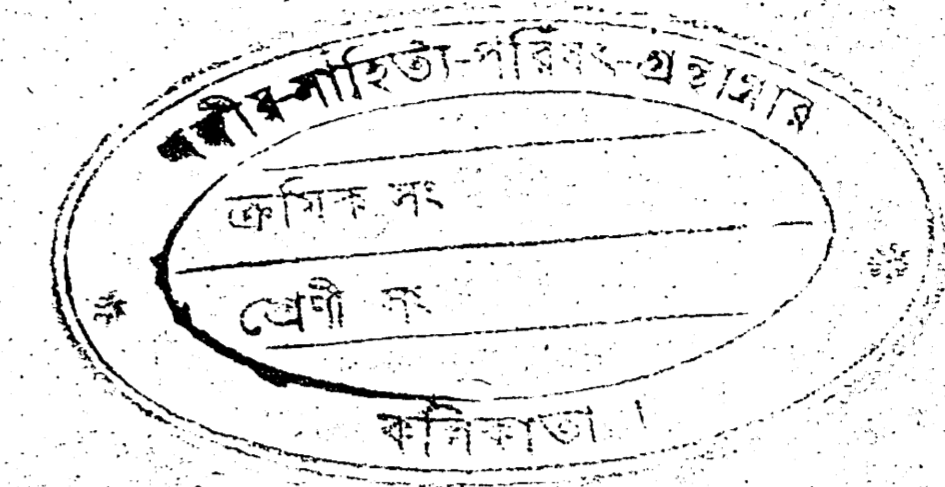 বঙ্গীয়-সাহিত্য-পরিষৎ-গ্রন্থাগার
ক্রমিক নং
শ্রেণী নং
কলিকাতা ।